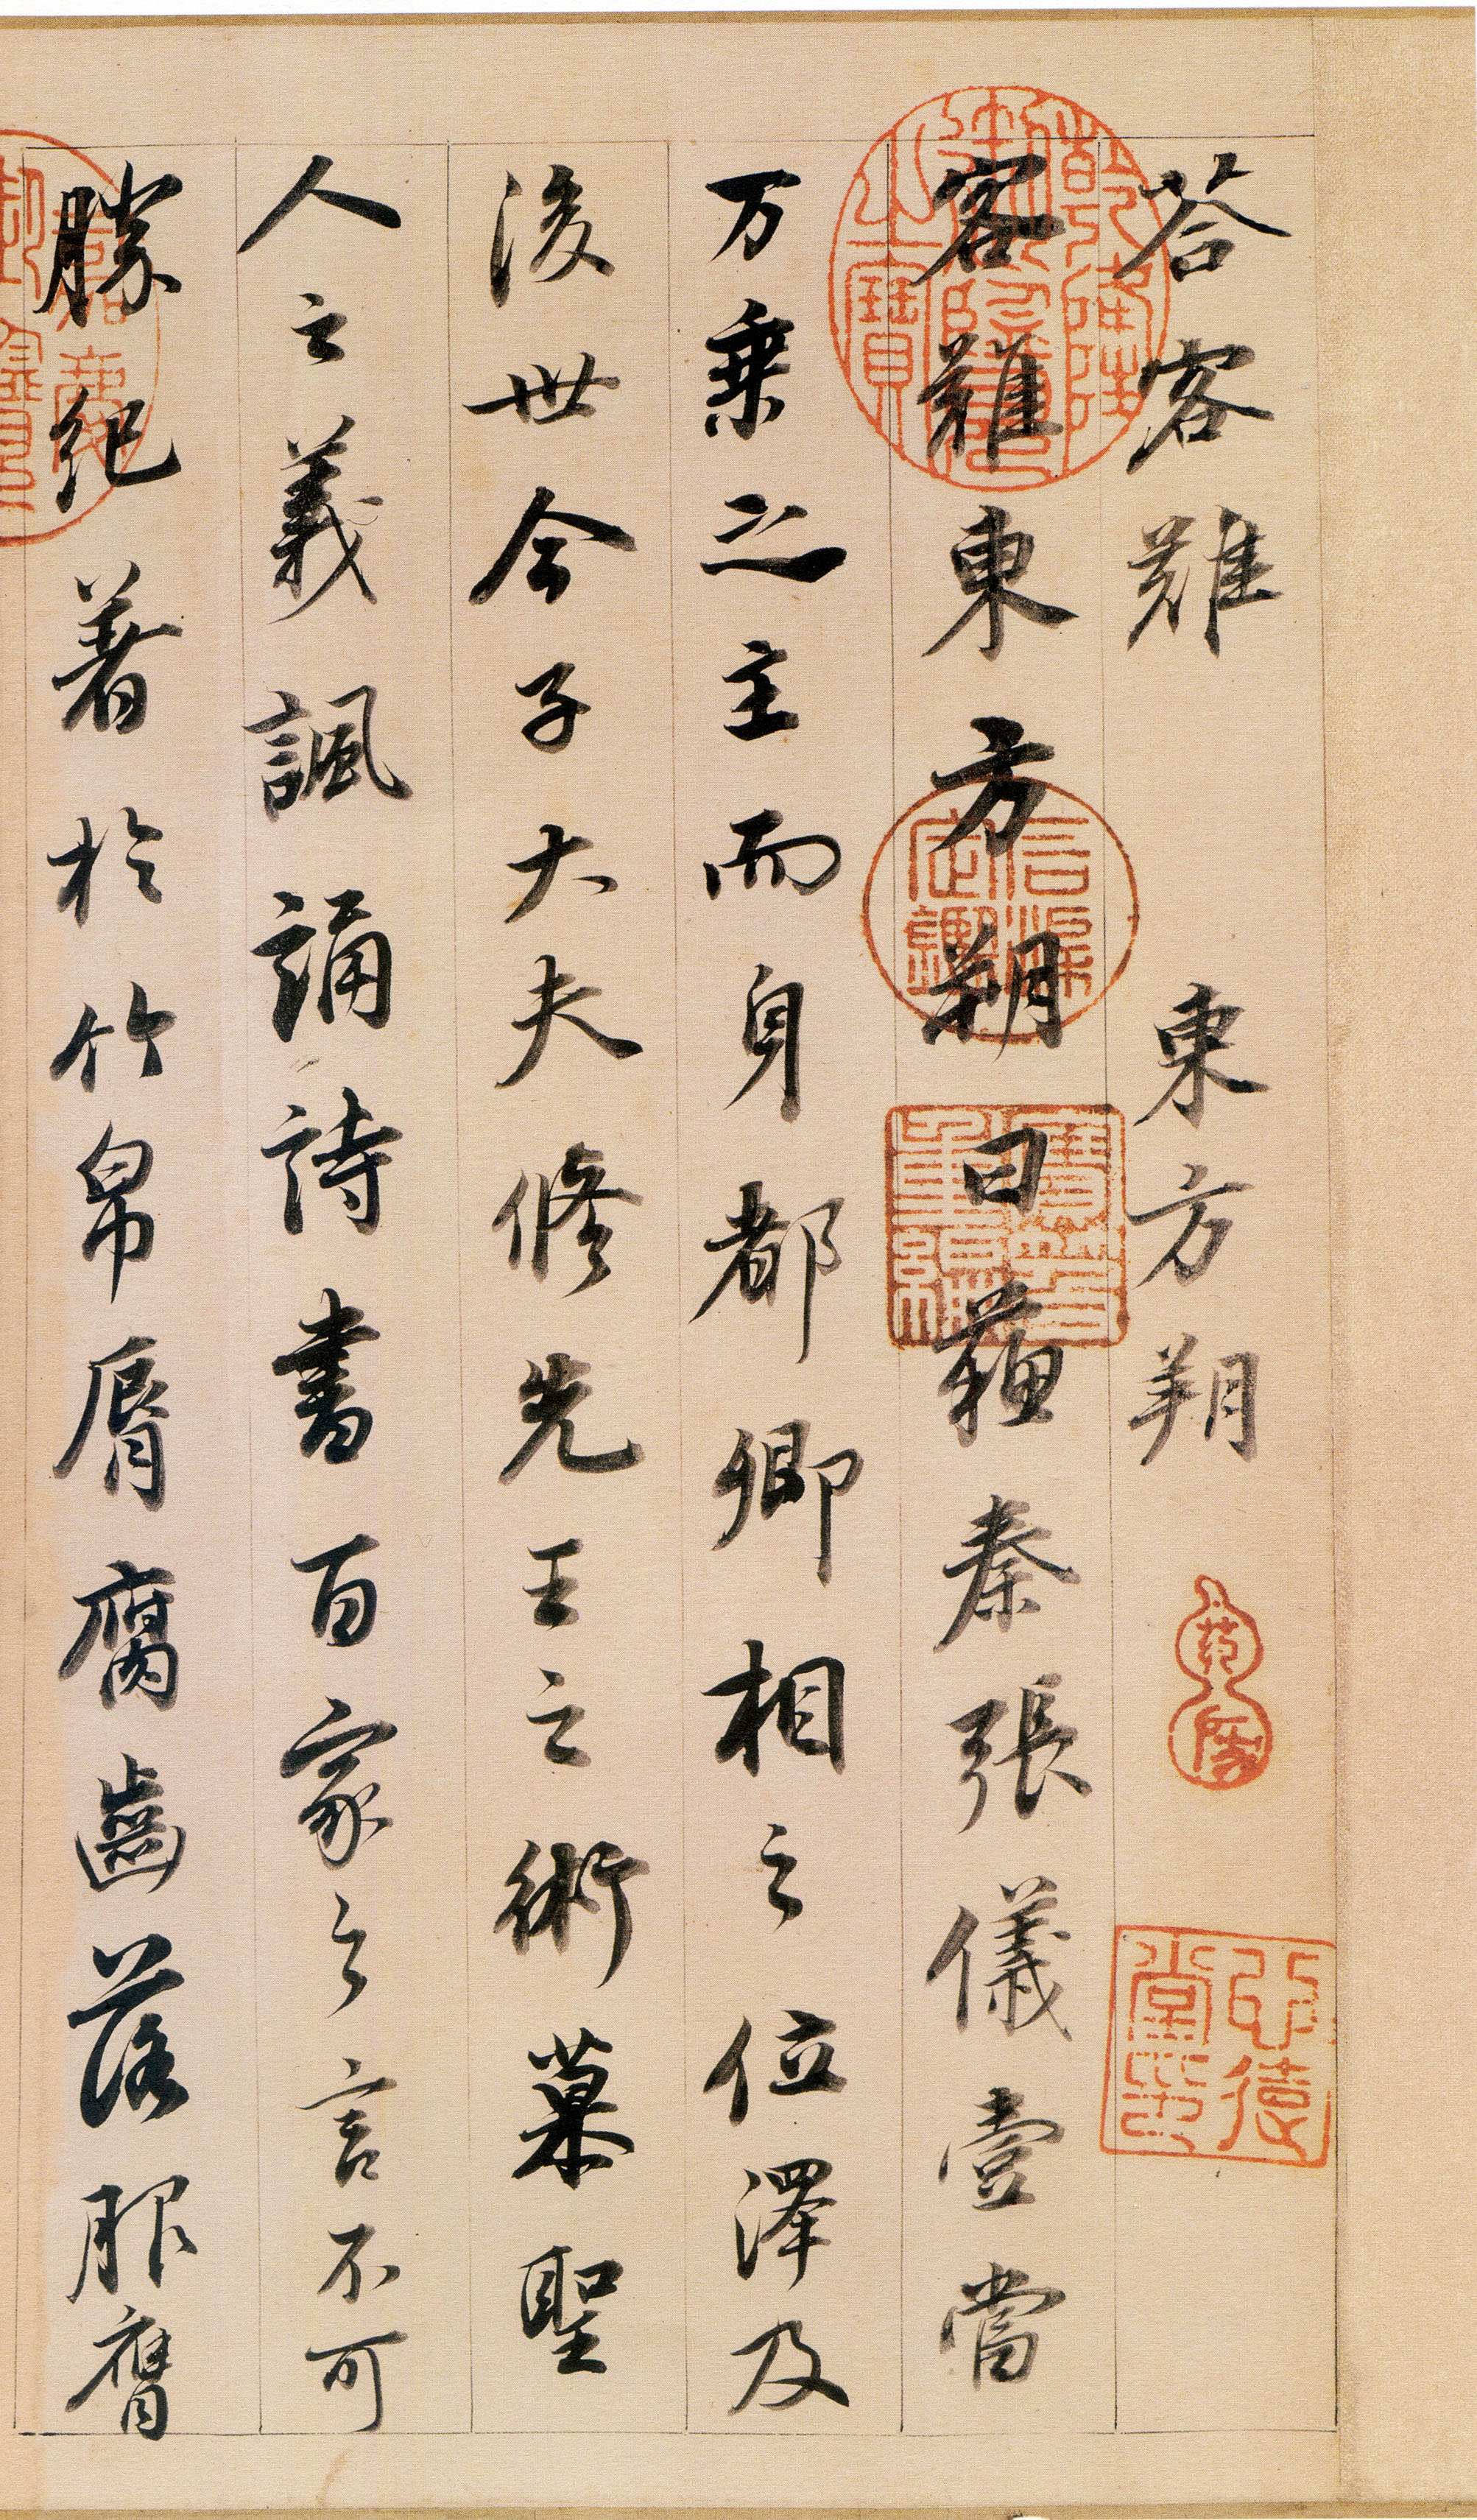 答客難 東方朔
客難東方朔曰蘇秦張儀壹當
万乗之主而身都卿相之位澤及
後世今子大夫修先王之術慕聖
人之義諷誦詩書百家之言不可
勝紀著於竹帛脣腐齒落服膺
乾隆御覽之寶
嘉慶御覽